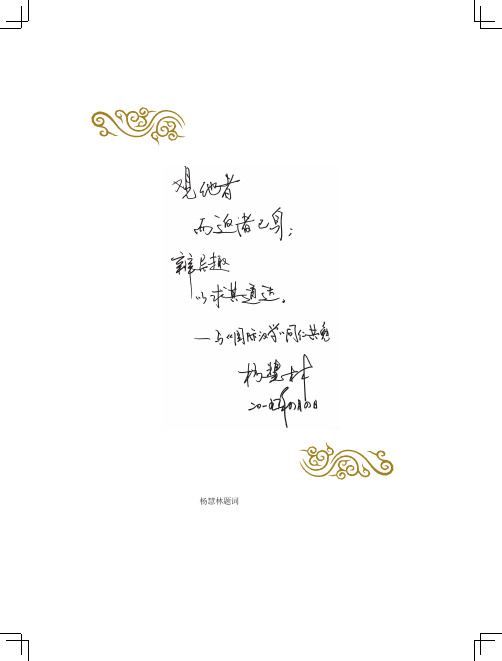 观他者
而返诸己身；
辨异趣
以求其通达。
——与《国际汉学》同仁共勉
杨慧林
二〇一四年〇月〇日
杨慧林题词